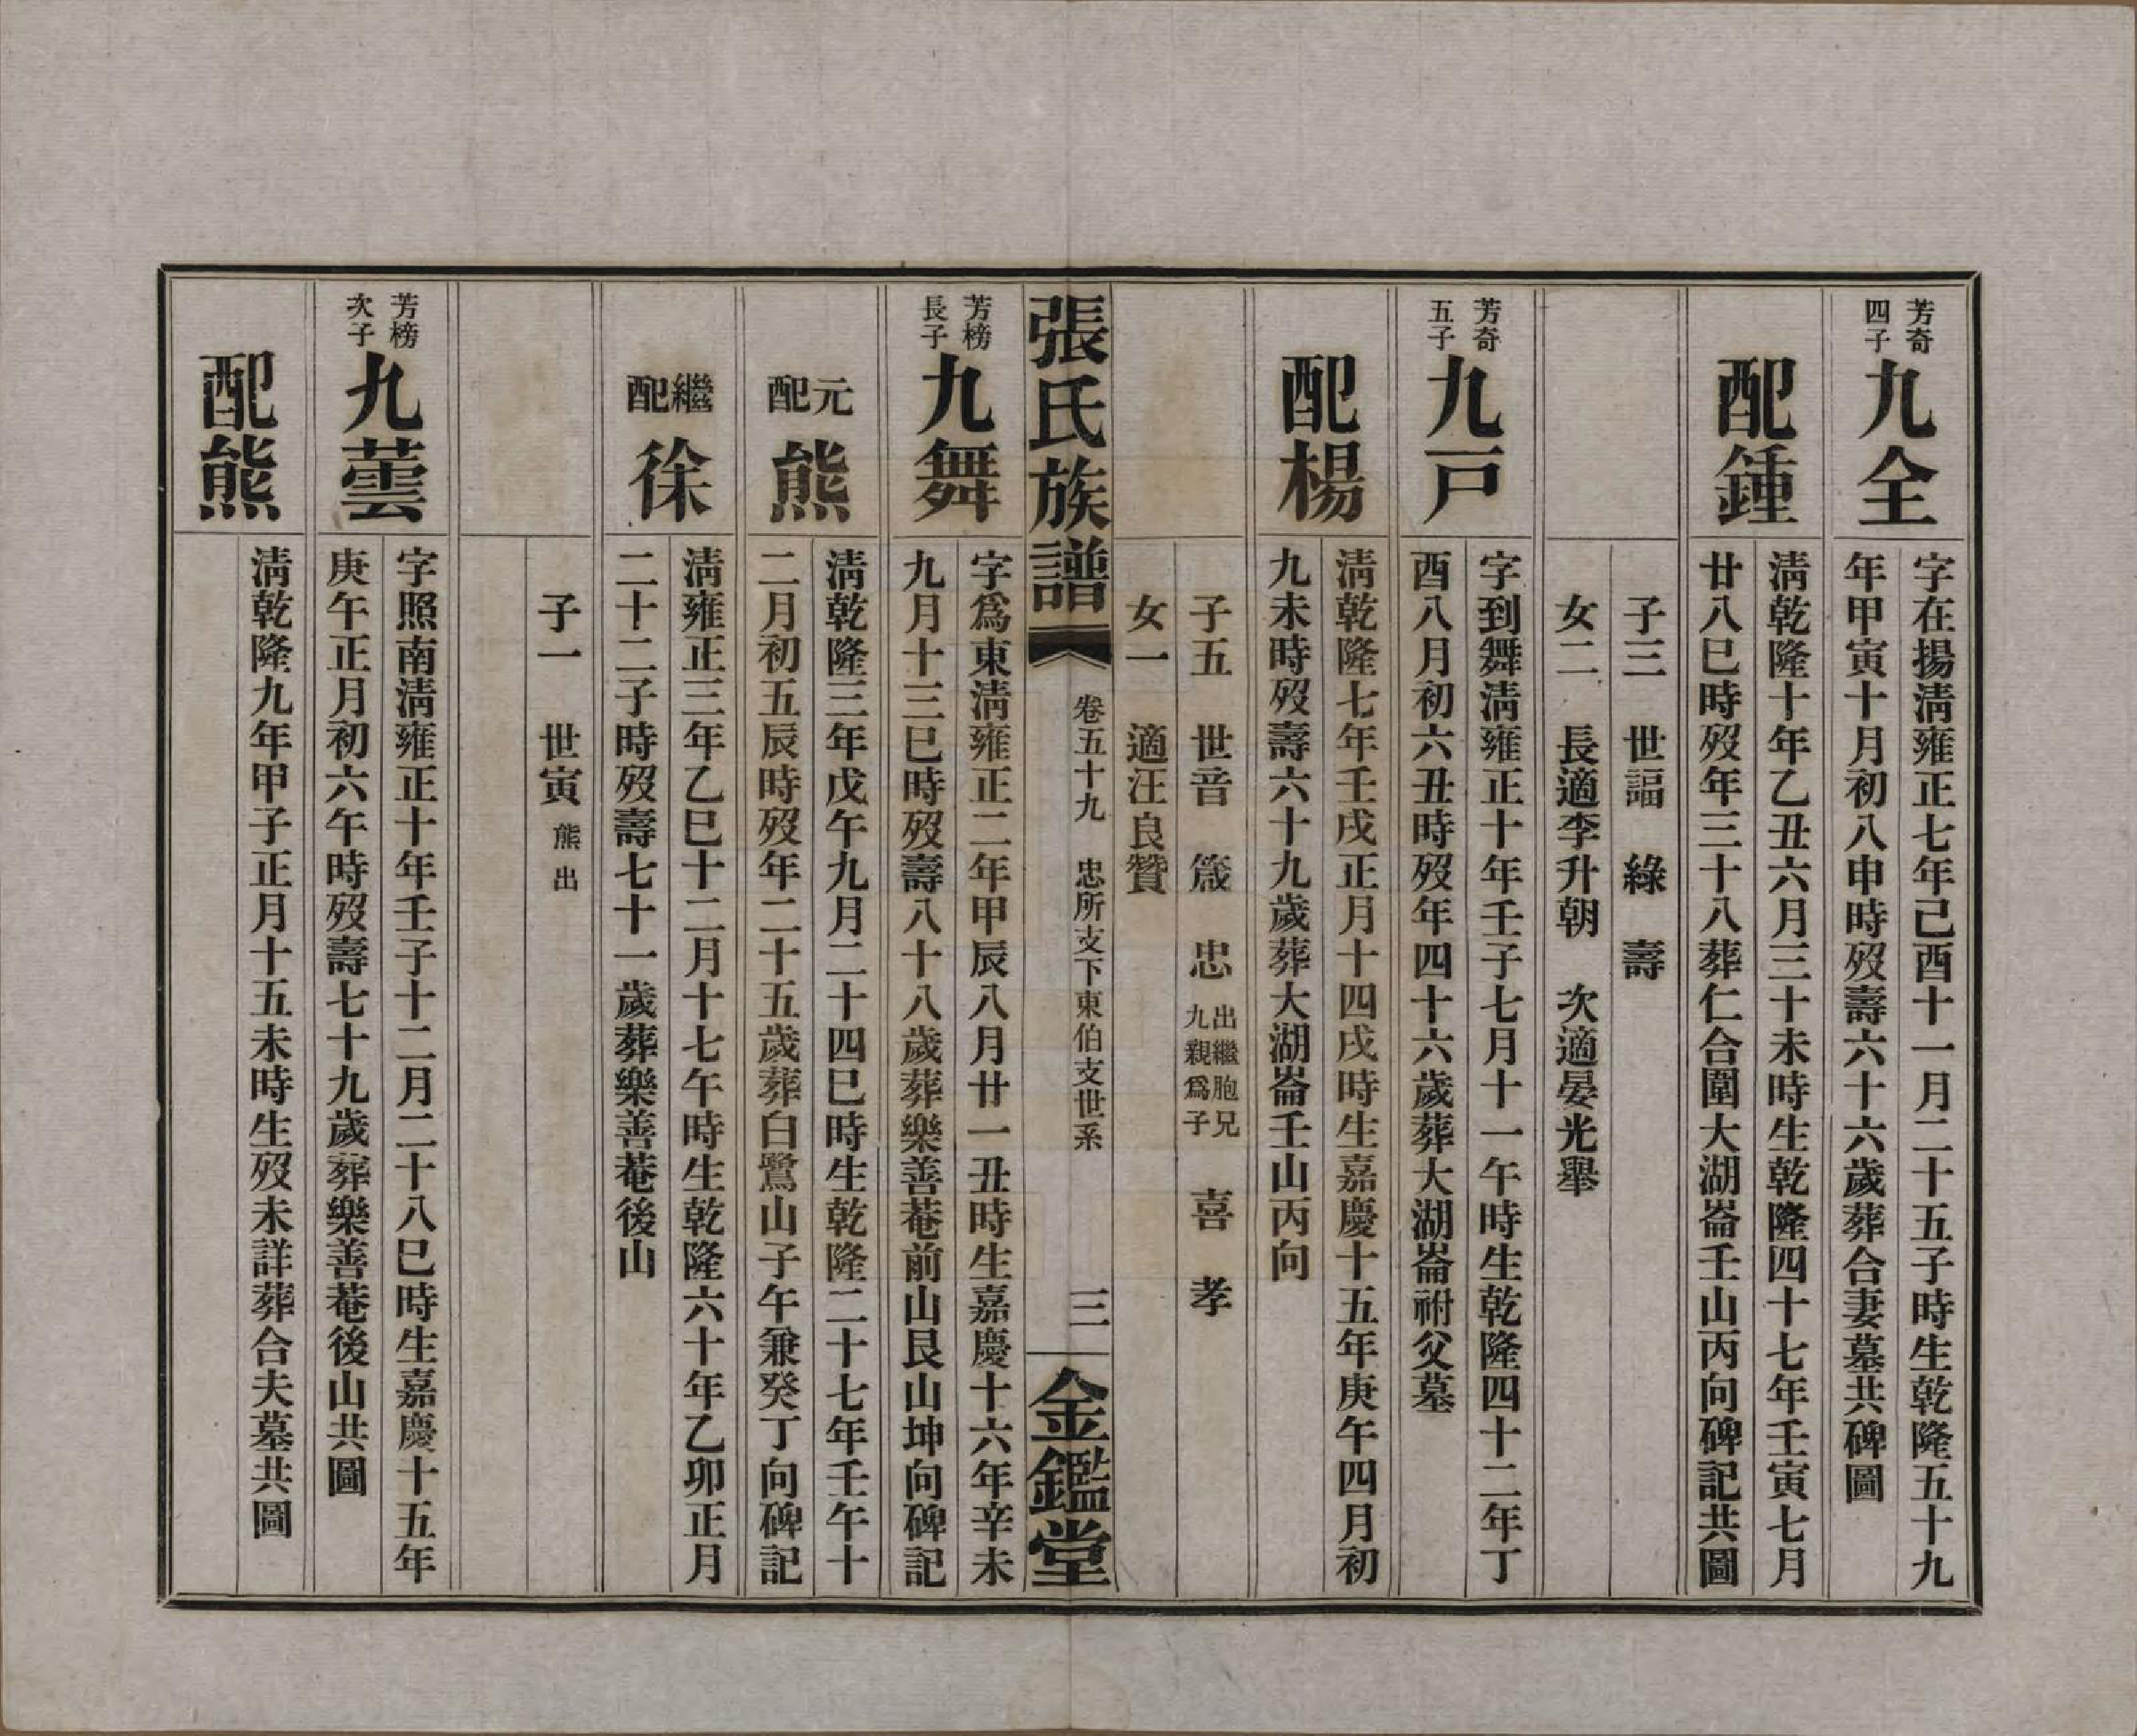 芳奇
四子
九全
字在揚淸雍正七年己酉十一月二十五子時生乾隆五十九
年甲寅十月初八申時歿壽六十六歲葬合妻墓共碑圖
配鍾
淸乾隆十年乙丑六月三十未時生乾隆四十七年壬寅七月
廿八巳時歿年三十八葬仁合圍大湖崙壬山丙向碑記共圖
子三　世諨　綠　壽
女二　長適李升朝　次適晏光舉
芳奇
五子
九戸
字到舞淸雍正十年壬子七月十一午時生乾隆四十二年丁
酉八月初六丑時歿年四十六歲葬大湖崙祔父墓
配楊
淸乾隆七年壬戌正月十四戌時生嘉慶十五年庚午四月初
九未時歿壽六十九歲葬大湖崙壬山丙向
子五　世音　箴　忠　出繼胞兄九親爲子　喜　孝
女一　適汪良贊
張氏族譜　卷五十九　忠所支下東伯支世系　三　金鑑堂
芳榜
長子
九舞
字爲東淸雍正二年甲辰八月廿一丑時生嘉慶十六年辛未
九月十三巳時歿壽八十八歲葬樂善菴前山艮山坤向碑記
元配
熊
淸乾隆三年戊午九月二十四巳時生乾隆二十七年壬午十
二月初五辰時歿年二十五歲葬白鷺山子午兼癸丁向碑記
繼配
徐
淸雍正三年乙巳十二月十七午時生乾隆六十年乙卯正月
二十二子時歿壽七十一歲葬樂善菴後山
子一　世寅　熊出
芳榜
次子
九蕓
字照南淸雍正十年壬子十二月二十八巳時生嘉慶十五年
庚午正月初六午時歿壽七十九歲葬樂善菴後山共圖
配熊
淸乾隆九年甲子正月十五未時生歿未詳葬合夫墓共圖